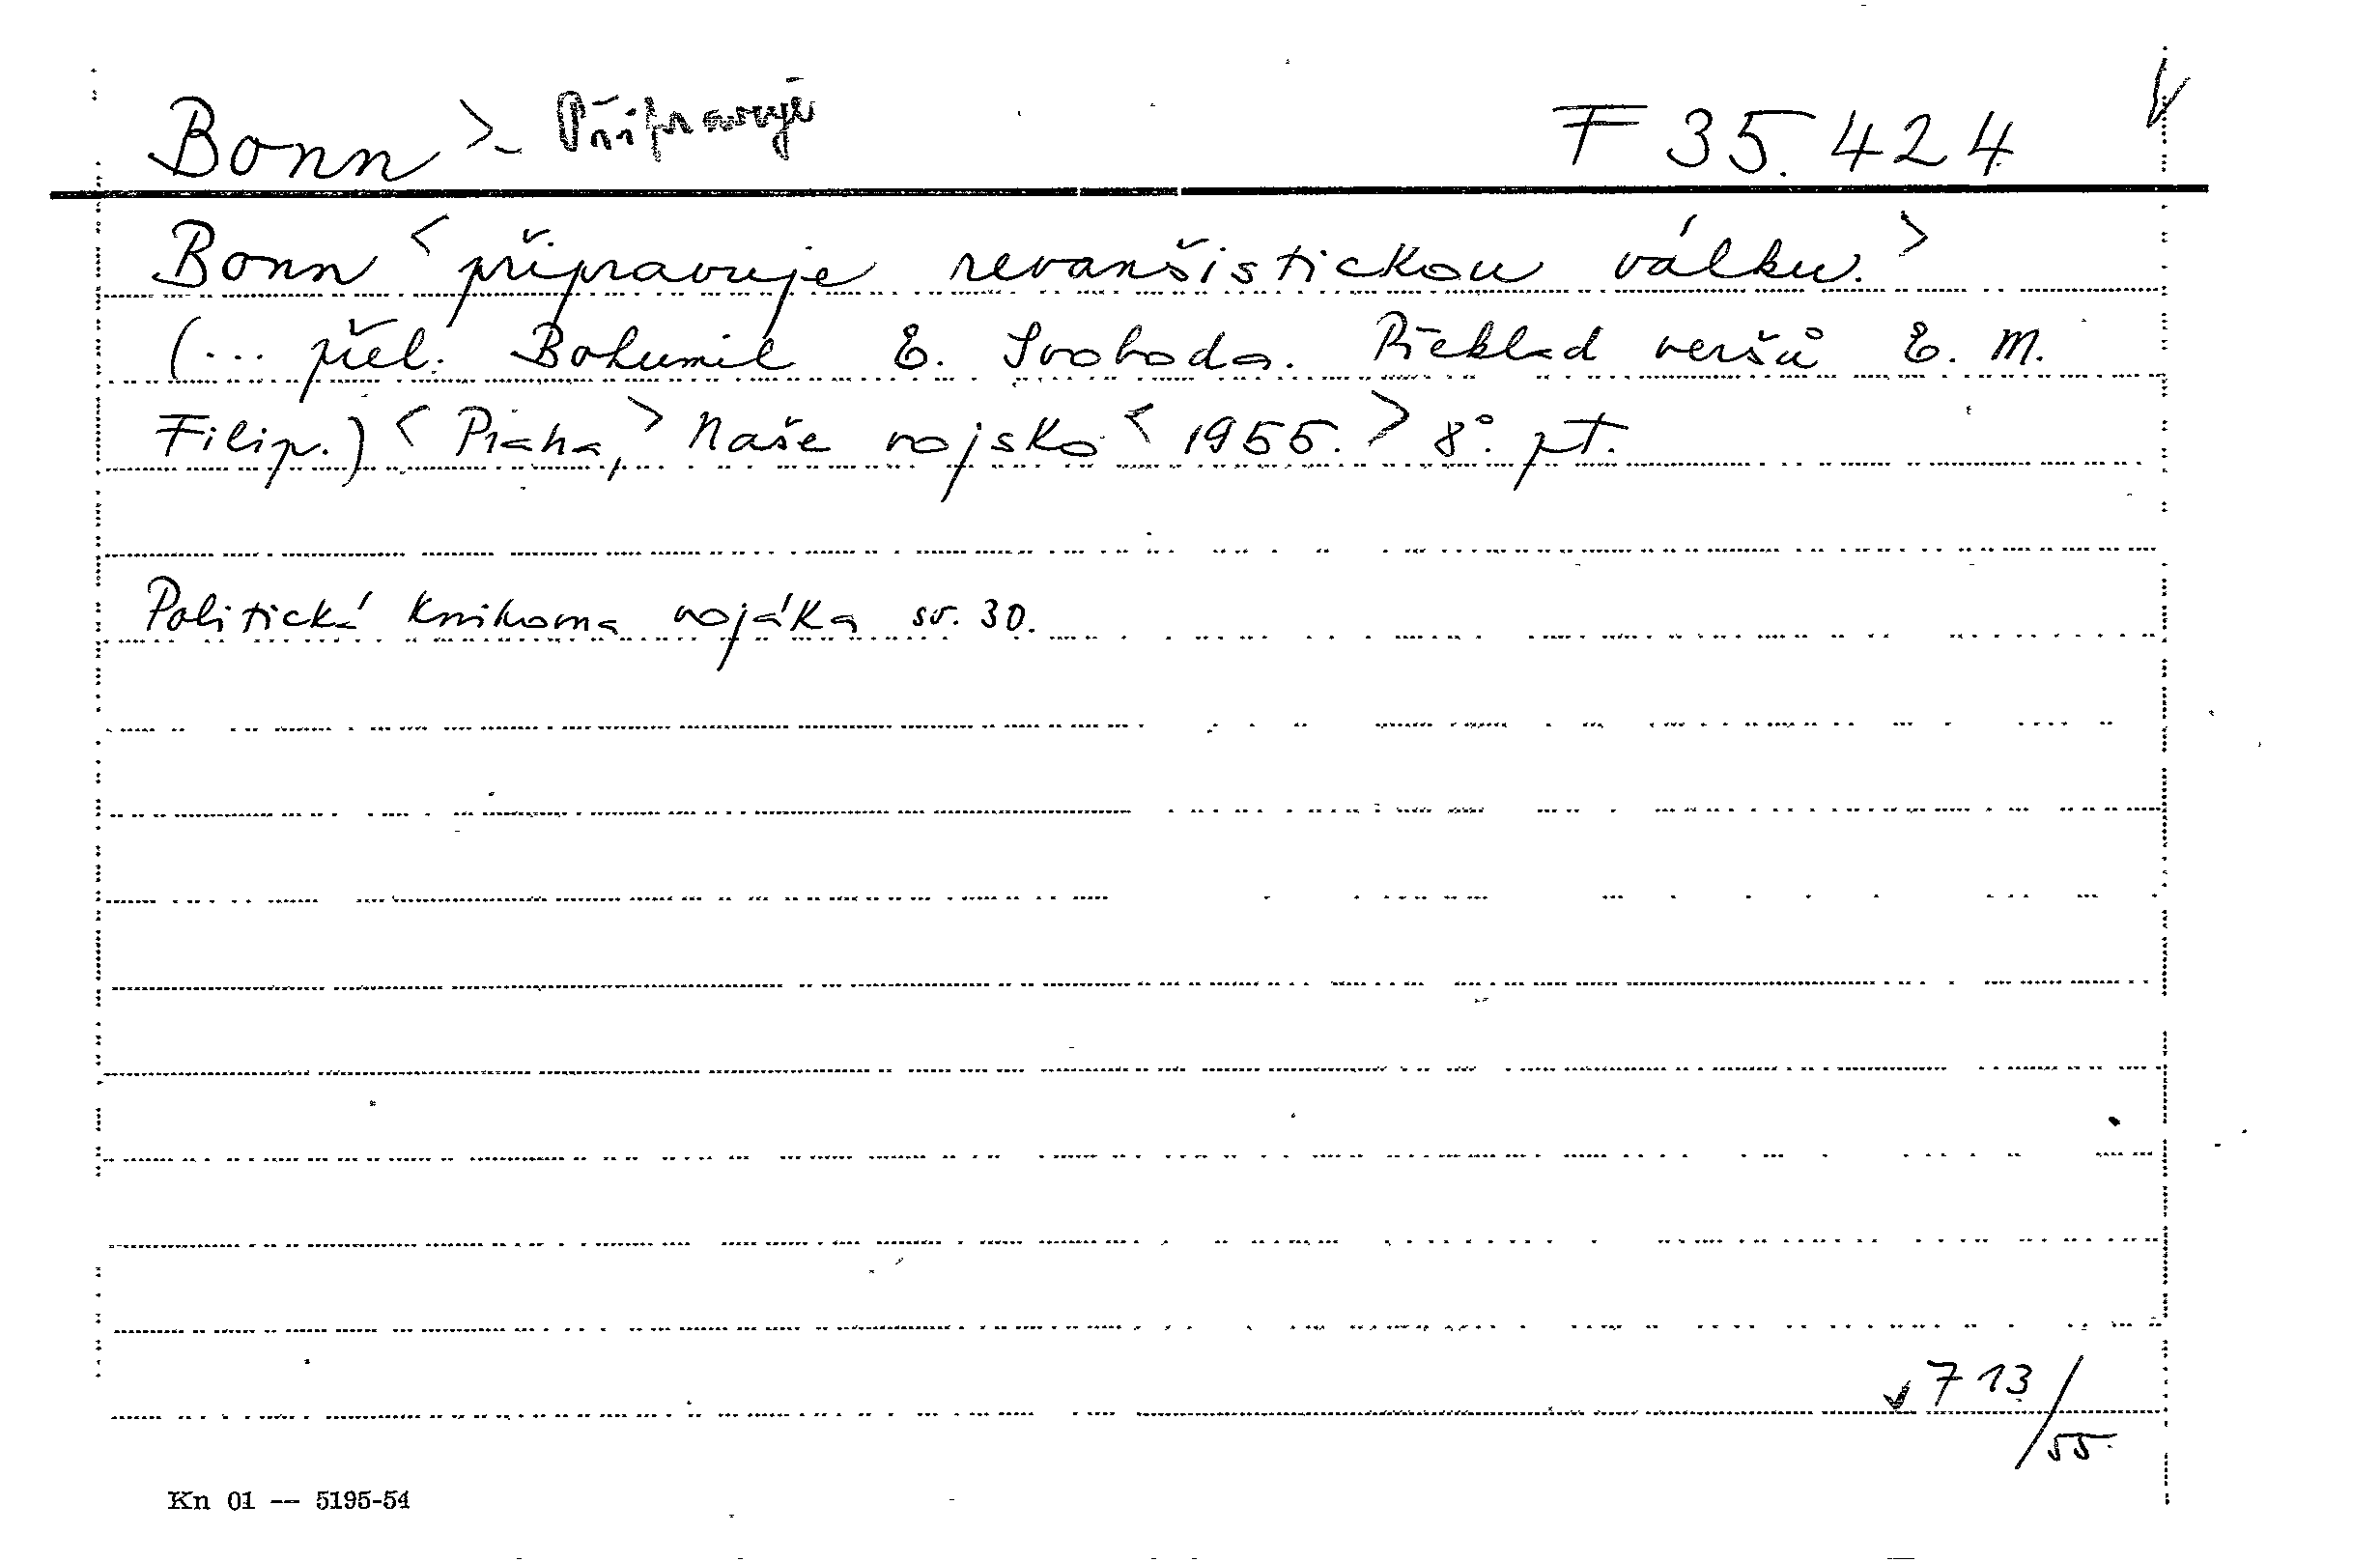 Bonn >- Připravuje F 35.424
Bonn < připravuje revanšistickou válku. >
(... přel. Bohumil E. Svoboda. Překlad veršů E. M.
Filip.) < Praha, > Naše vojsko < 1955. > 8°. pt.
Politická knihovna vojáka sv. 30.
713/55.
Kn 01 — 5195-54